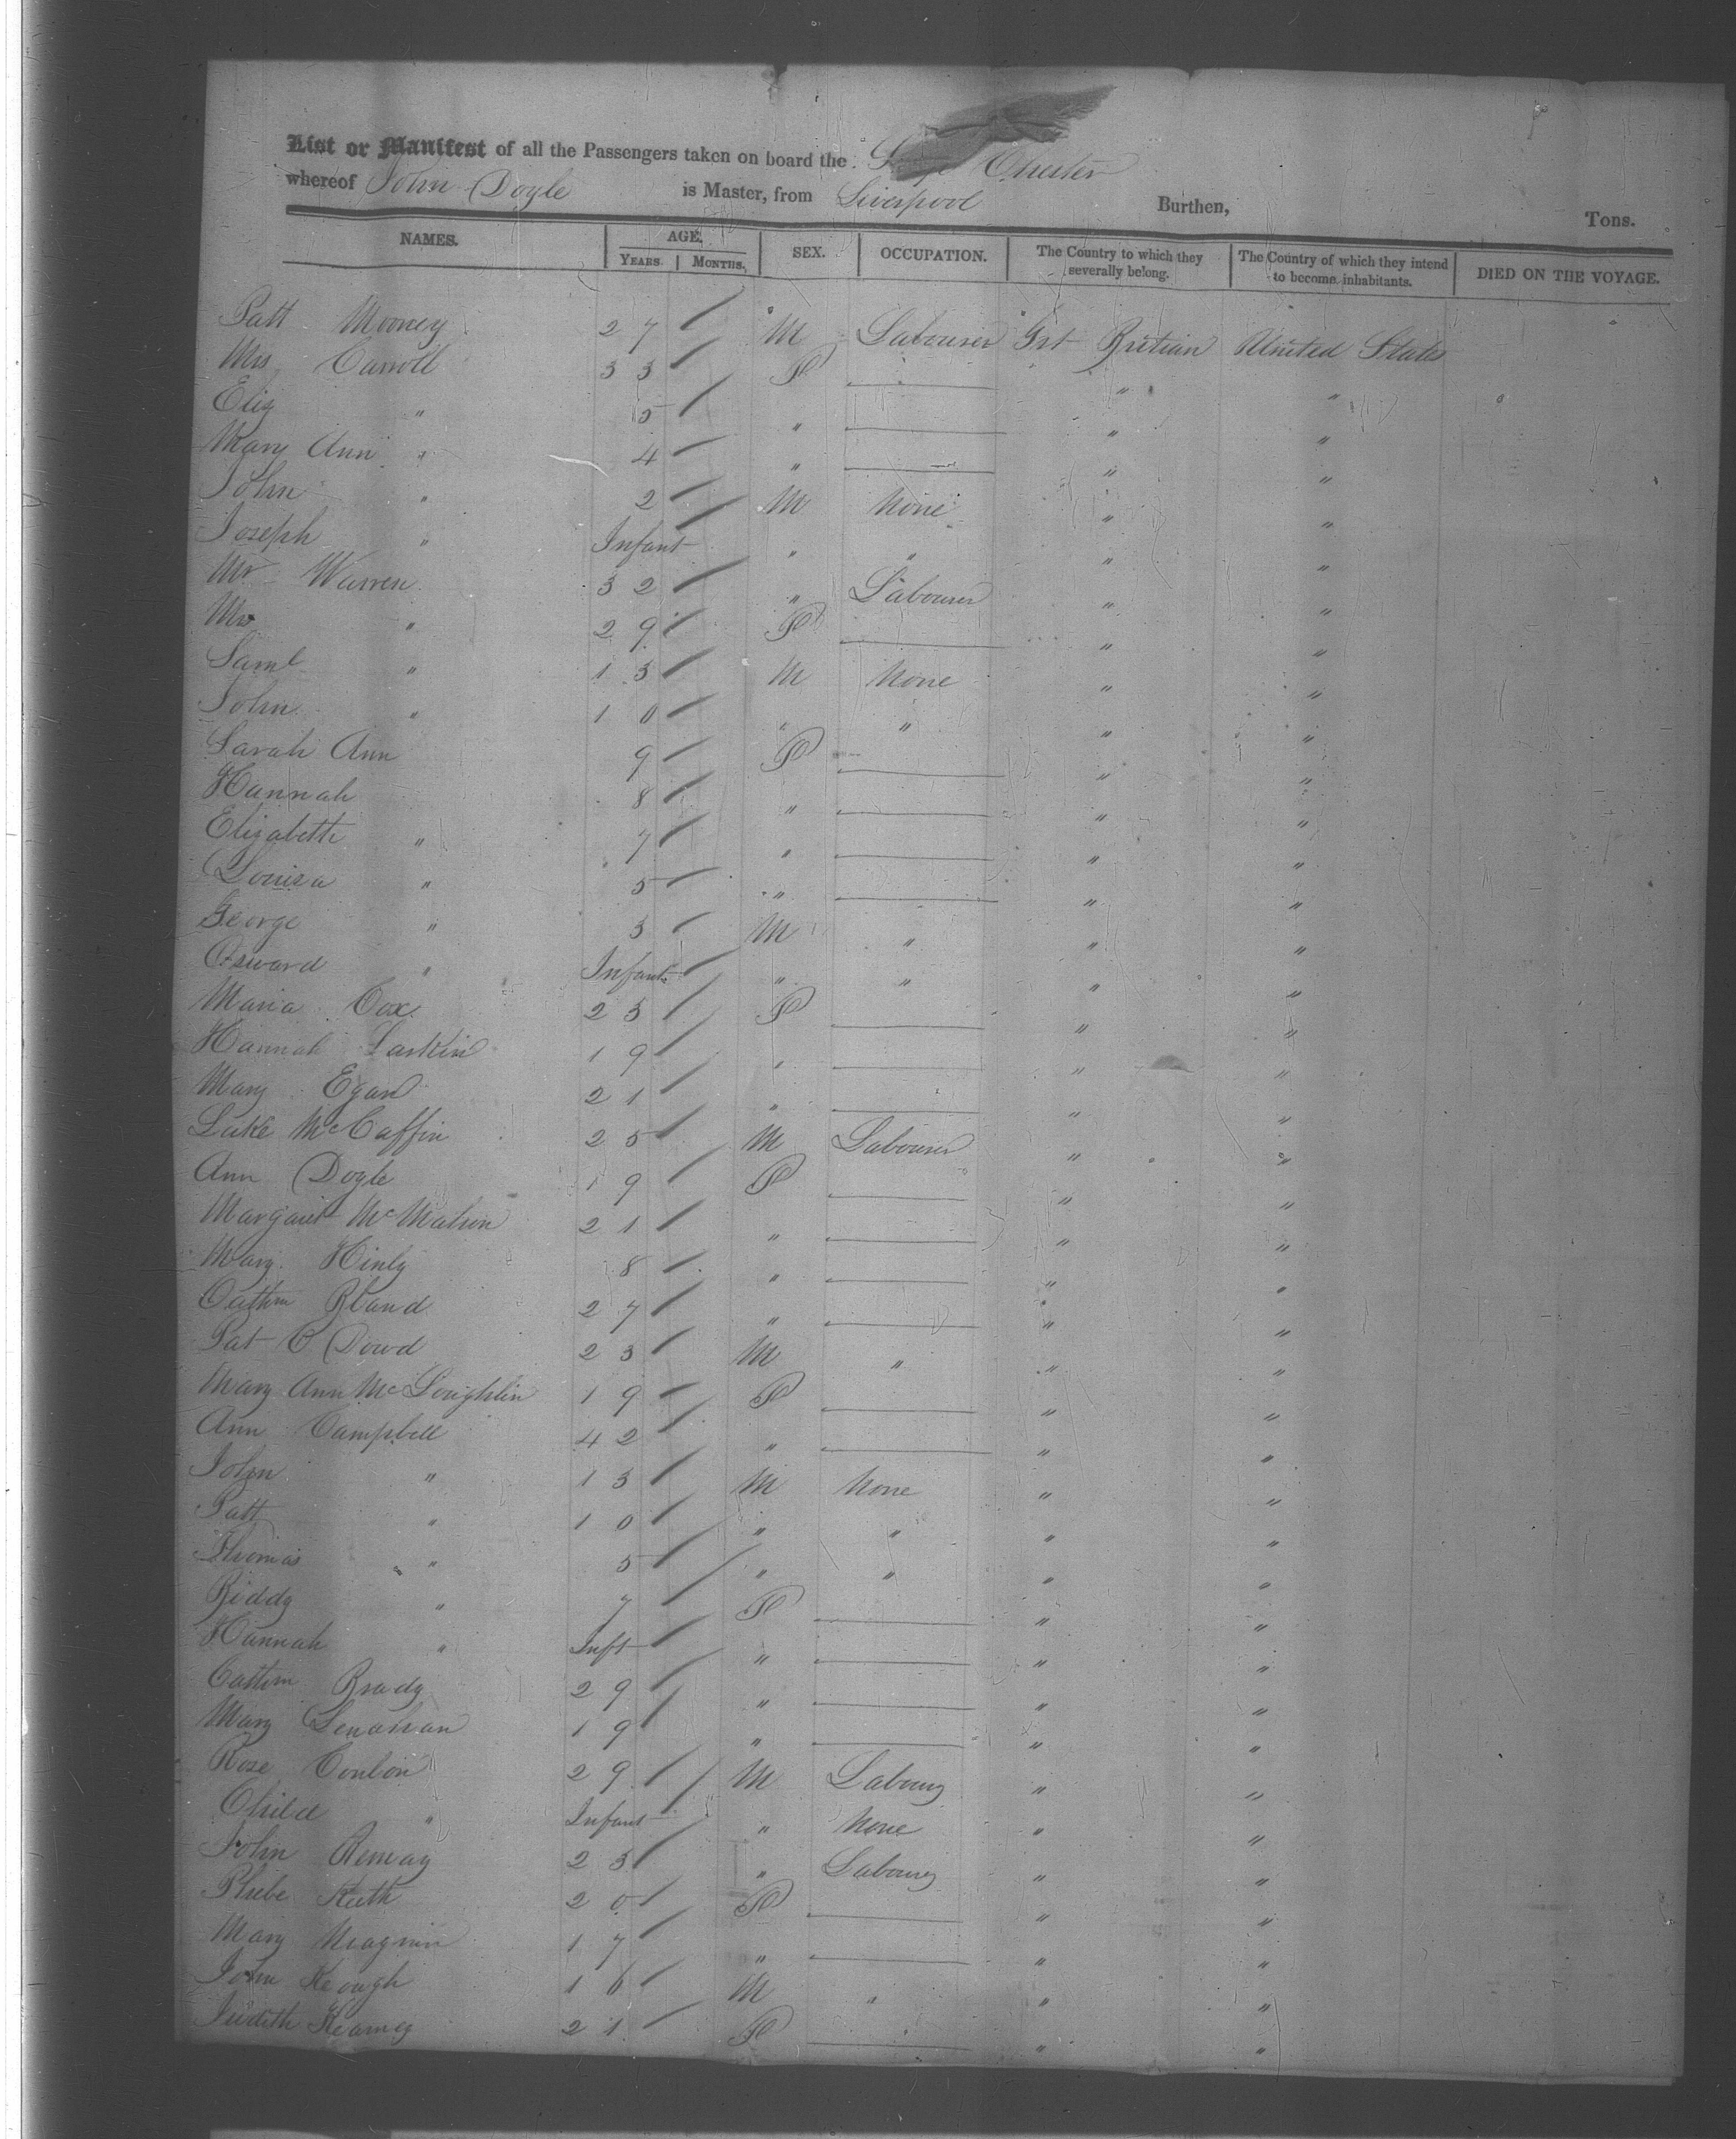 List or Manifest of all the Passengers taken on board the Chester
whereof John Doyle is Master, from Liverpool Burthen, Tons.
NAMES. AGE. SEX. OCCUPATION. The Country to which they severally belong. The Country of which they intend to become inhabitants. DIED ON THE VOYAGE.
YEARS MONTHS.
Patt Mooney 27 M Labourer Grt Britian United States
Mrs Carroll 33 F " "
Eliz " 5 " " "
Mary Ann " 4 " " "
John " 2 M None " "
Joseph " Infant " " " "
Mr Warren 32 " Labourer " "
Mrs " 29 F " "
Saml " 13 M None " "
John " 10 " " " "
Sarah Ann 9 F " "
Hannah 8 " " "
Elizabeth " 7 " " "
Louisa " 5 " " "
George " 3 M " " "
" Infant " " " "
Maria Cox 23 F " "
Hannah Larkin 19 " " "
Mary Egan 21 " " "
Luke McCaffin 25 M Labourer " "
Ann Doyle 19 F " "
Margaret McMahon 21 " " "
Mary Hinly 8 " " "
Cathm Bland 27 " " "
Pat O Dowd 23 M " " "
Mary Ann McLoughlin 19 F " "
Ann Campbell 42 " " "
John " 13 M None " "
Patt " 10 " " " "
Thomas " 5 " " " "
Biddy " 7 F " "
Hannah " Inft " " "
Cathm Brady 29 " " "
Mary Lenahan 19 " " "
Rose Conlon 29 M Labour " "
Child " Infant " None " "
John 23 " Labour " "
Phebe Keith 20 F " "
Mary 17 " " "
John Keough 16 M " " "
Judith Kearney 21 F " "